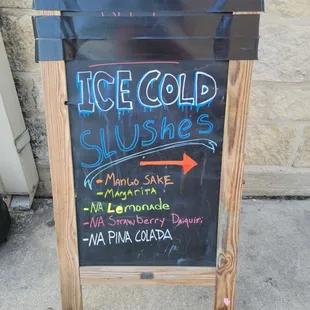 ICE COLD
Slushes
-Mango Sake
-Margarita
-NA Lemonade
-NA Strawberry Daiquiri
-NA PINA COLADA